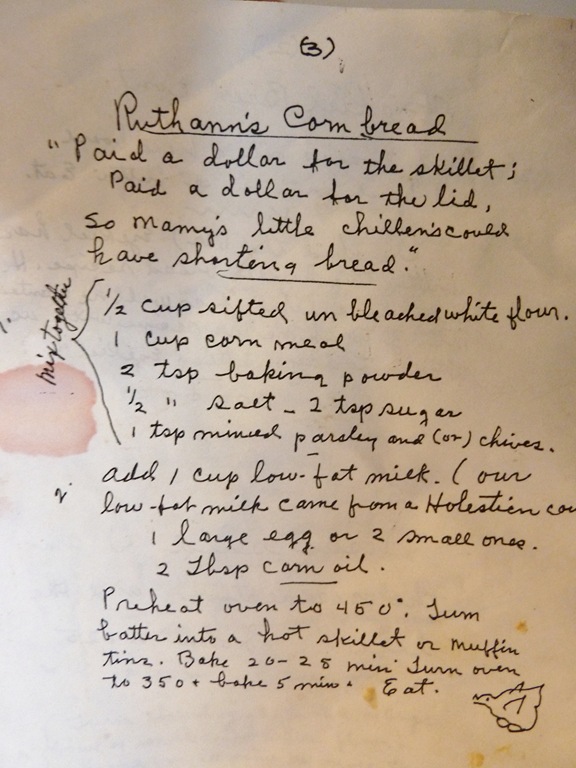 (3)
Ruthann's Corn bread
"Paid a dollar for the skillet;
Paid a dollar for the lid,
So mamy's little chillen's could
have shorting bread."
1. mix together
1/2 cup sifted un bleached white flour.
1 cup corn meal
2 tsp baking powder
1/2 " salt - 2 tsp sugar
1 tsp minced parsley and (or) chives.
2. add 1 cup low-fat milk. (our
low-fat milk came from a Holestien cow
1 large egg or 2 small ones.
2 Tbsp corn oil.
Preheat oven to 450°. Turn
batter into a hot skillet or muffin
tins. Bake 20-25 min. Turn oven
to 350 + bake 5 min. Eat.